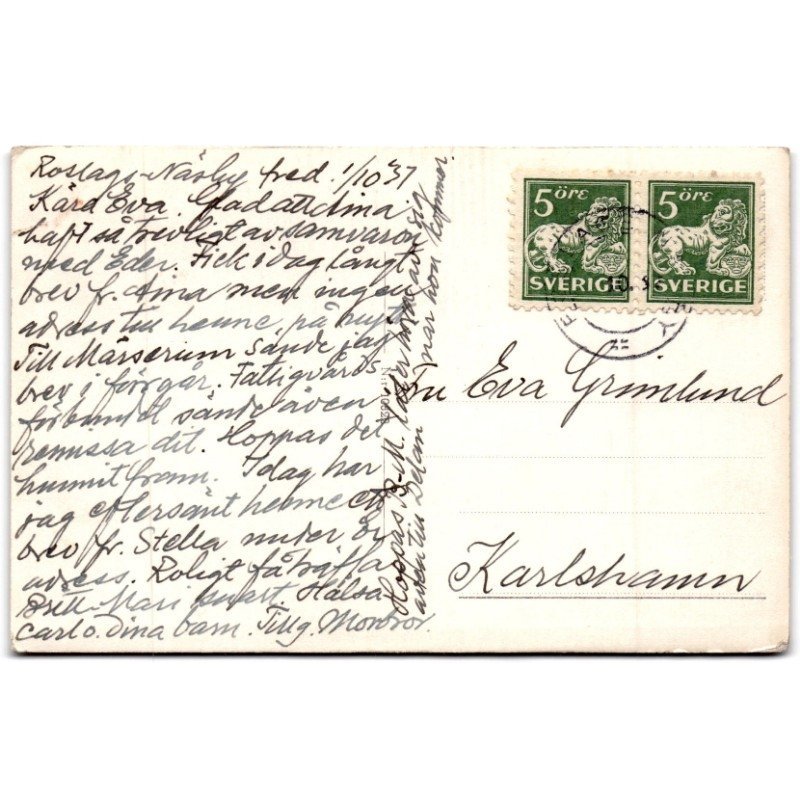 Roslags-Näsby fred. 1/10 37
Kära Eva. Glad att dina
haft så trevligt av samvaron
med Eder. Fick i dag långt
brev fr. Aina men ingen
adress till henne, på nytt
Till Märserum sände jag
brev i förgår. Fattigvårds-
förbundet sände även
remussa dit. Hoppas det
hunnit fram. I dag har
jag eftersänt henne ett
brev fr. Stella under Er
adress. Roligt få träffa
Britt-Mari snart. Hälsa
Carl o. dina barn. Tillg.
Hoppas B-M. låter mig
även till Delan när hon kommer.
5 ÖRE
SVERIGE
5 ÖRE
SVERIGE
Fru Eva Grimlund
Karlshamn